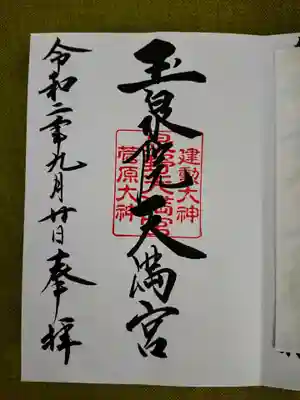 建勲大神
玉泉院天満宮
菅原大神
令和二年九月廿日奉拝